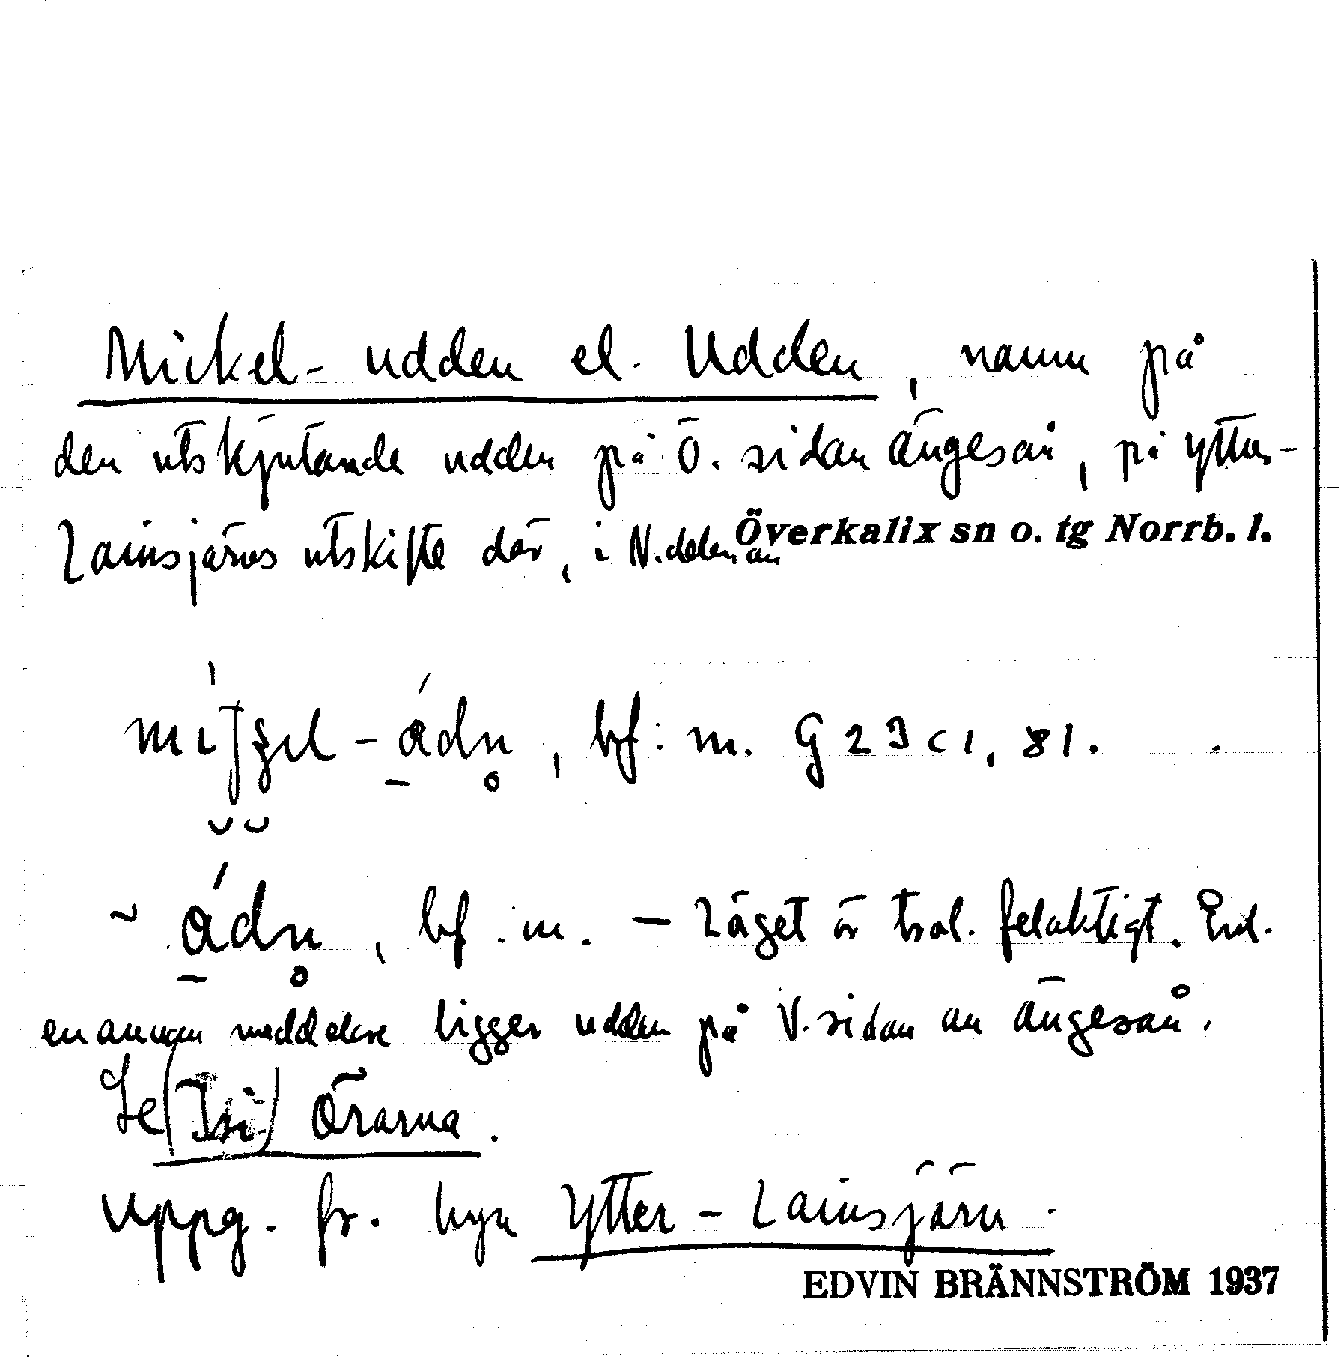 Mickel-udden el. Udden, namn på
den utskjutande udden på Ö. sidan Ängesån, på Ytter-
Lainsjärvs utskifte där, i N. delen an
Överkalix sn o. tg Norrb. l.
-ådn, bf: m. G 23 c 1, 81.
~ ådn, bf. m. — Läget är trol. felaktigt. Enl.
en annan meddelare ligger udden på V. sidan an Ängesån.
Se (Isi) Örarna.
Uppg. fr. byn Ytter-Lainsjärv.
EDVIN BRÄNNSTRÖM 1937